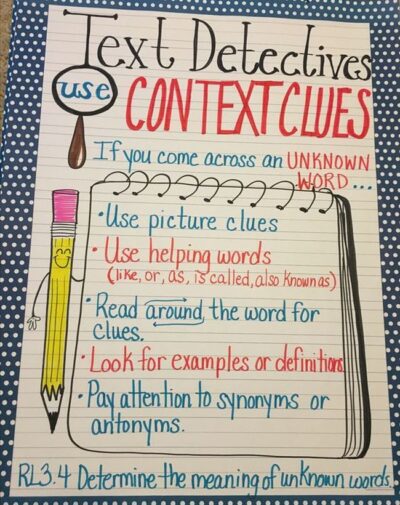 Text Detectives
use CONTEXT CLUES
If you come across an UNKNOWN
WORD...
• Use picture clues
• Use helping words
(like, or, as, is called, also known as)
• Read around the word for
clues.
• Look for examples or definitions
• Pay attention to synonyms or
antonyms.
RL3.4 Determine the meaning of unknown words